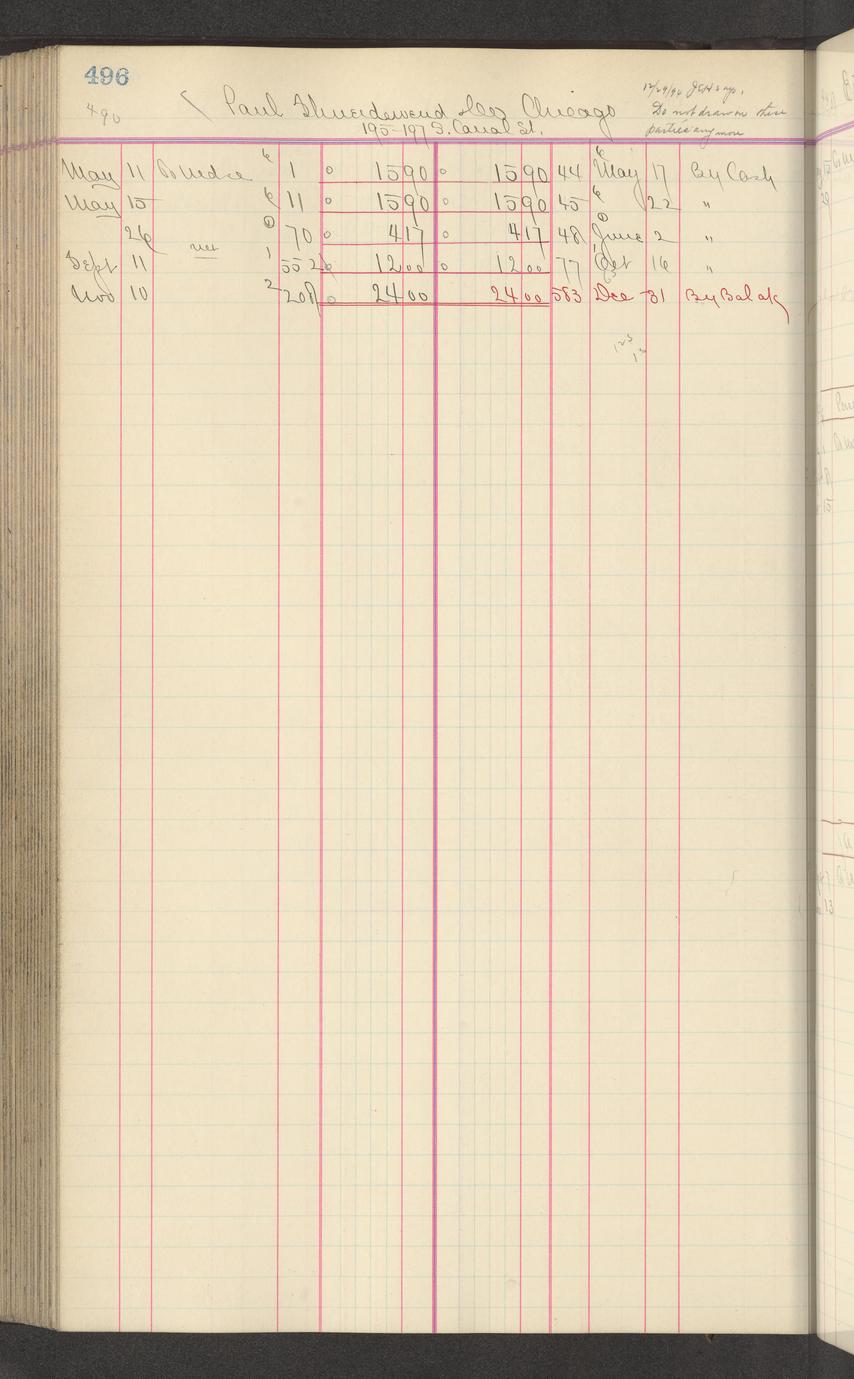 496
490 Paul Shniedewend & Co Chicago
195-197 S. Canal St.
12/29/90 JCH says,
Do not draw on these
parties any more
May 11 To Mdse 6 1 0 15 90 0 15 90 44 6 May 17 By Cash
May 15 6 11 0 15 90 0 15 90 45 6 22 "
26 1 70 0 4 17 0 4 17 48 1 June 2 "
Sept 11 net 1 552 0 12 00 0 12 00 77 Oct 16 "
Nov 10 2 208 0 24 00 24 00 583 Dec 31 By Bal